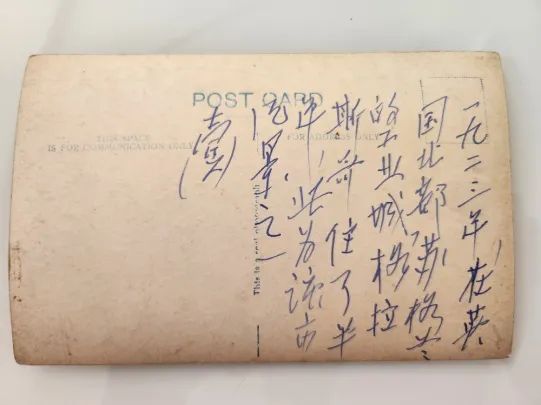 POST CARD
THIS SPACE
IS FOR COMMUNICATION ONLY
FOR ADDRESS ONLY
This is a real photograph
一九二三年,在英
国北部苏格兰
的工业城格拉
斯哥住了半
年,此为该市
风景之一